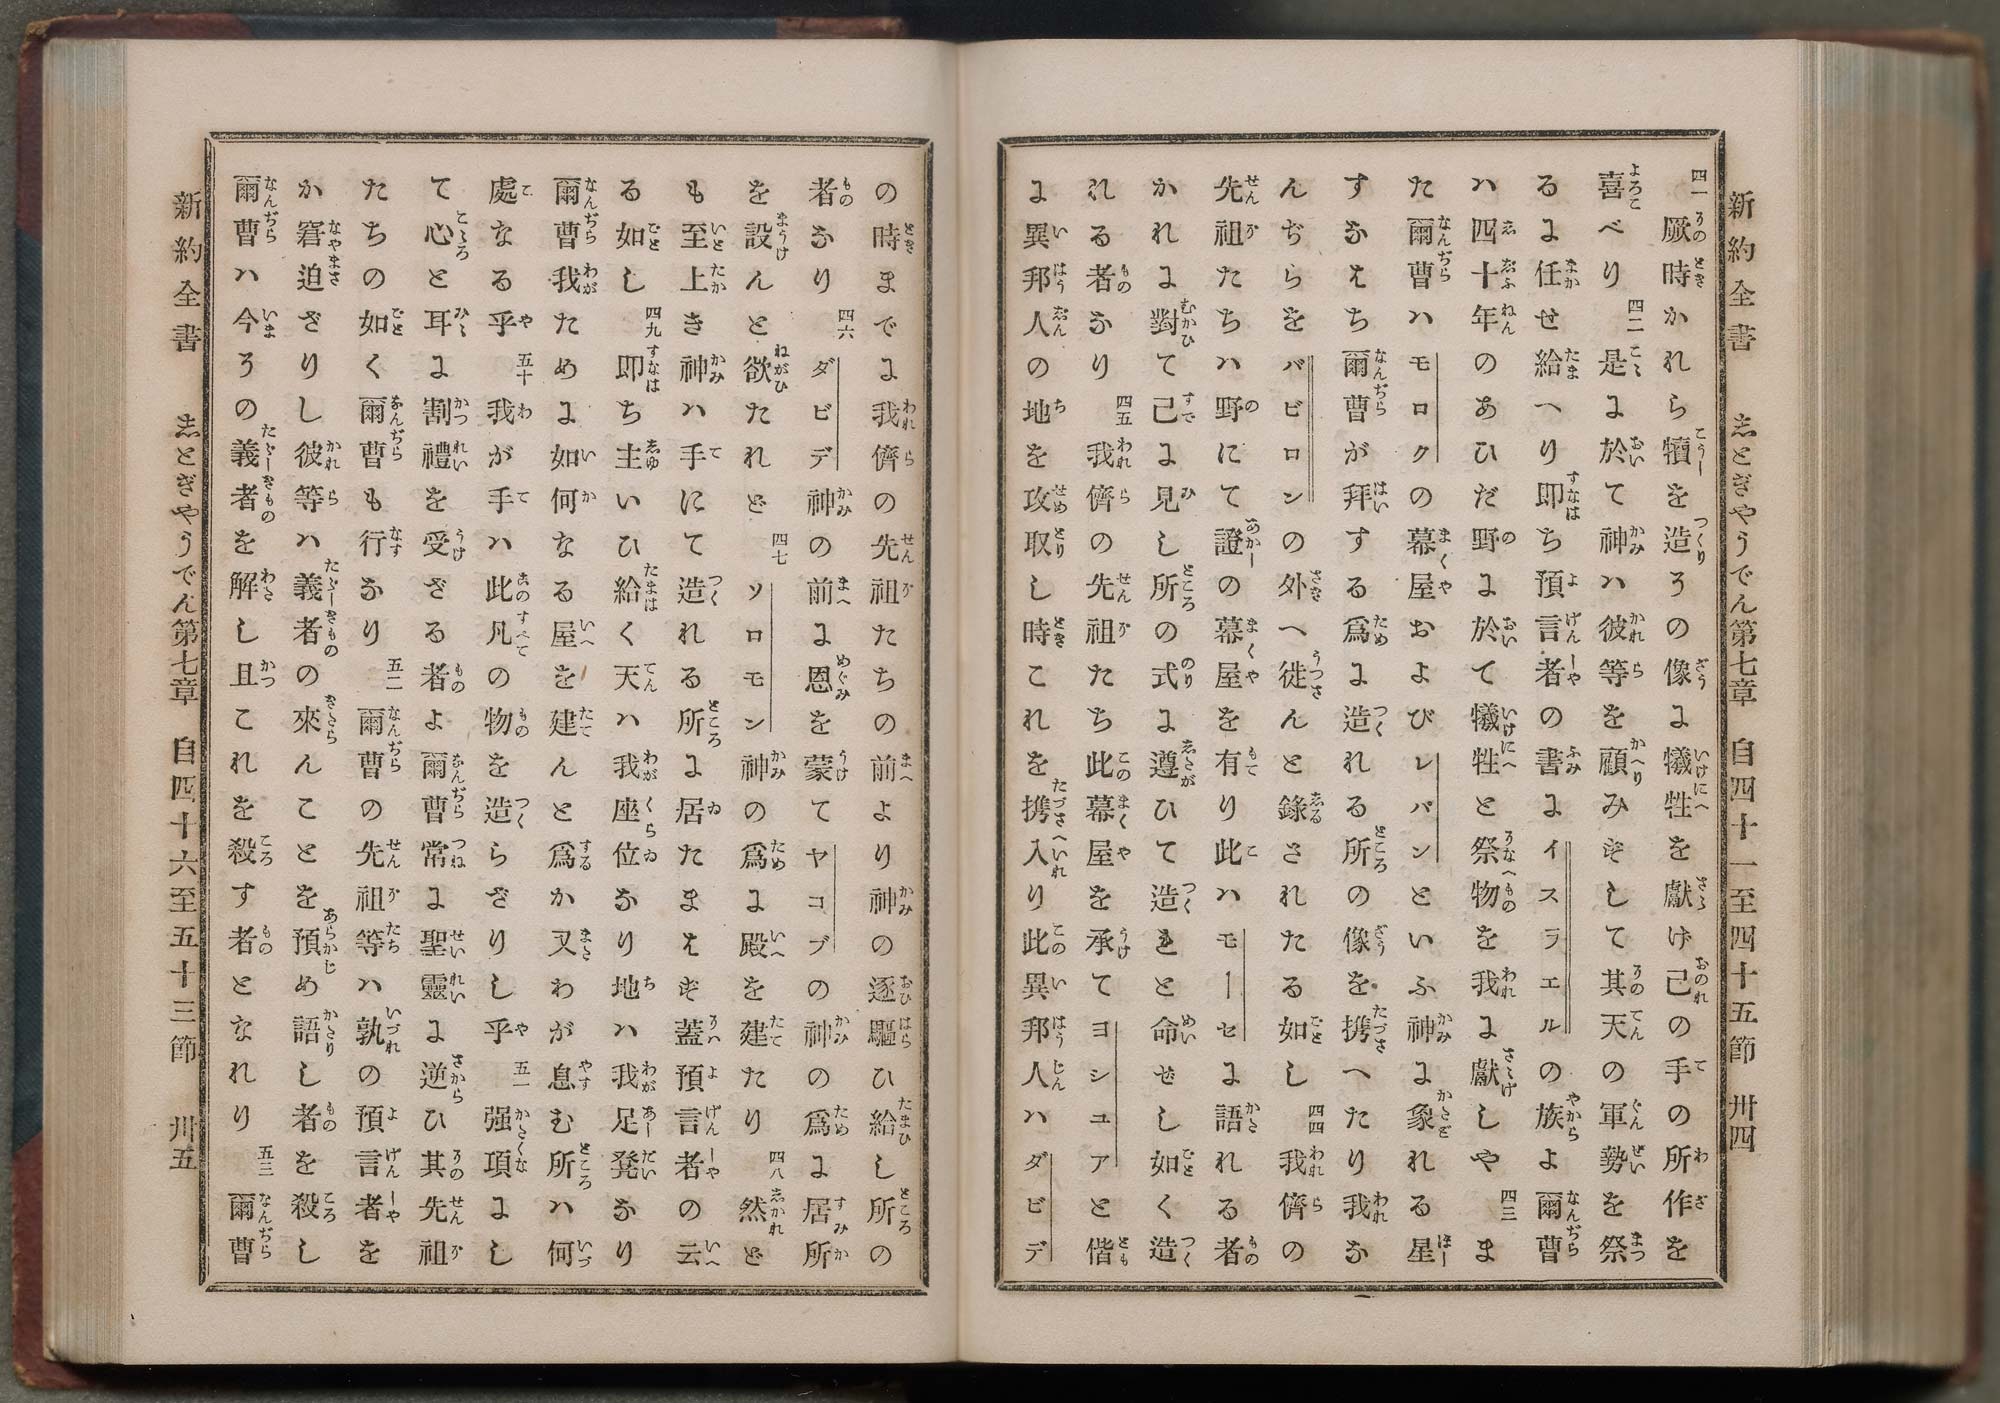 新約全書　志とぎやうでん第七章　自四十一至四十五節　卅四
四一 厥時かれら犢を造りその像に犠牲を獻げ己の手の所作を
喜べり 四二 是に於て神ハ彼等を顧みずして其天の軍勢を祭
るに任せ給へり即ち預言者の書にイスラエルの族よ爾曹
ハ四十年のあひだ野に於て犠牲と祭物を我に獻しや 四三 ま
た爾曹ハモロクの幕屋およびレパンといふ神に象れる星
すなえち爾曹が拜する爲に造れる所の像を携へたり我な
んぢらをバビロンの外へ徙んと錄されたる如し 四四 我儕の
先祖たちハ野にて證の幕屋を有り此ハモーセに語れる者
かれに對て己に見し所の式に遵ひて造れと命せし如く造
れる者なり 四五 我儕の先祖たち此幕屋を承てヨシユアと偕
に異邦人の地を攻取し時これを携入り此異邦人ハダビデ
の時までに我儕の先祖たちの前より神の逐驅ひ給し所の
者なり 四六 ダビデ神の前に恩を蒙てヤコブの神の爲に居所
を設んと欲たれど 四七 ソロモン神の爲に殿を建たり 四八 然ど
も至上き神ハ手にて造れる所に居たまえず蓋預言者の云
る如し 四九 即ち主いひ給く天ハ我座位なり地ハ我足凳なり
爾曹我ために如何なる屋を建んと爲か又わが息む所ハ何
處なる乎 五十 我が手ハ此凡の物を造らざりし乎 五一 强項にし
て心と耳に割禮を受ざる者よ爾曹常に聖靈に逆ひ其先祖
たちの如く爾曹も行なり 五二 爾曹の先祖等ハ孰の預言者を
か窘迫ざりし彼等ハ義者の來んことを預め語し者を殺し
爾曹ハ今その義者を解し且これを殺す者となれり 五三 爾曹
新約全書　志とぎやうでん第七章　自四十六至五十三節　卅五